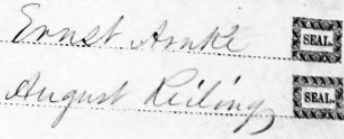 Ernst Arnke SEAL.
August Reiling SEAL.